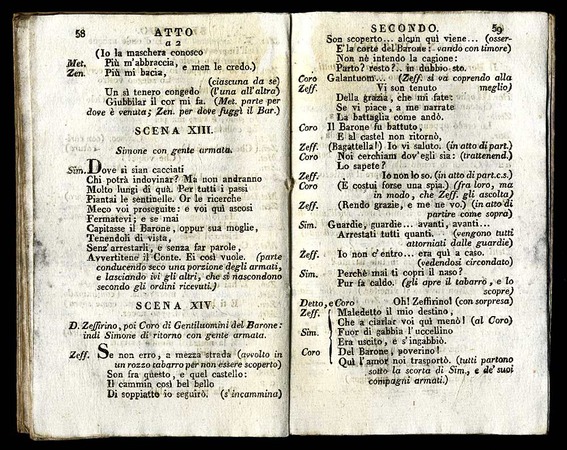 58 ATTO
a 2
(Io la maschera conosco
Met. Più m'abbraccia,
e men le credo.)
Zen. Più mi bacia,
(ciascuna da se)
Un sì tenero congedo (l'una all'altra)
Giubbilar il cor mi fa. (Met. parte per
dove è venuta; Zen. per dove fuggì il Bar.)
SCENA XIII.
Simone con gente armata.
Sim. Dove si sian cacciati
Chi potrà indovinar? Ma non andranno
Molto lungi di quà. Per tutti i passi
Piantai le sentinelle. Or le ricerche
Meco voi proseguite: e voi quì ascosi
Fermatevi; e se mai
Capitasse il Barone, oppur sua moglie,
Tenendoli di vista,
Senz'arrestarli, e senza far parole,
Avvertitene il Conte. Ei così vuole. (parte
conducendo seco una porzione degli armati,
e lasciando ivi gli altri, che si nascondono
secondo gli ordini ricevuti.)
SCENA XIV.
D. Zeffirino, poi Coro di Gentiluomini del Barone:
indi Simone di ritorno con gente armata.
Zeff. Se non erro, a mezza strada (avvolto in
un rozzo tabarro per non essere scoperto)
Son fra questo, e quel castello:
Il cammin così bel bello
Di soppiatto io seguirò. (s'incammina)
SECONDO 59
Son scoperto... alcun quì viene... (osser-
E' la corte del Barone: vando con timore)
Non nè intendo la cagione:
Parto? resto?.. in dubbio sto.
Coro Galantuom... (Zeff. si va coprendo alla
Zeff. Vi son tenuto meglio)
Della grazia, che mi fate:
Se vi piace, a me narrate
La battaglia come andò.
Coro Il Barone fu battuto,
E al castel non ritornò,
Zeff. (Bagattella!) Io vi saluto. (in atto di part.)
Coro Noi cerchiam dov'egli sia: (trattenend.)
Lo sapete?
Zeff. Io non lo so. (in atto di part.c.s.)
Coro (E costui forse una spia.) (fra loro, ma
in modo, che Zeff. gli ascolta)
Zeff. (Rendo grazie, e me ne vo.) (in atto di
partire come sopra)
Sim. Guardie, guardie... avanti, avanti...
Arrestati tutti quanti. (vengono tutti
attorniati dalle guardie)
Zeff. Io non c'entro... era quì a caso.
(vedendosi circondato)
Sim. Perchè mai ti copri il naso?
Pur fa caldo. (gli apre il tabarro, e lo
scopre)
Detto, e Coro Oh! Zeffirino! (con sorpresa)
Zeff. Maledetto il mio destino,
Che a ciarlar voi quì menò! (al Coro)
Sim. Fuor di gabbia l'uccellino
Era uscito, e s'ingabbiò.
Coro Del Barone, poverino!
Quì l'amor noi trasportò. (tutti partono
sotto la scorta di Sim., e de' suoi
compagni armati.)